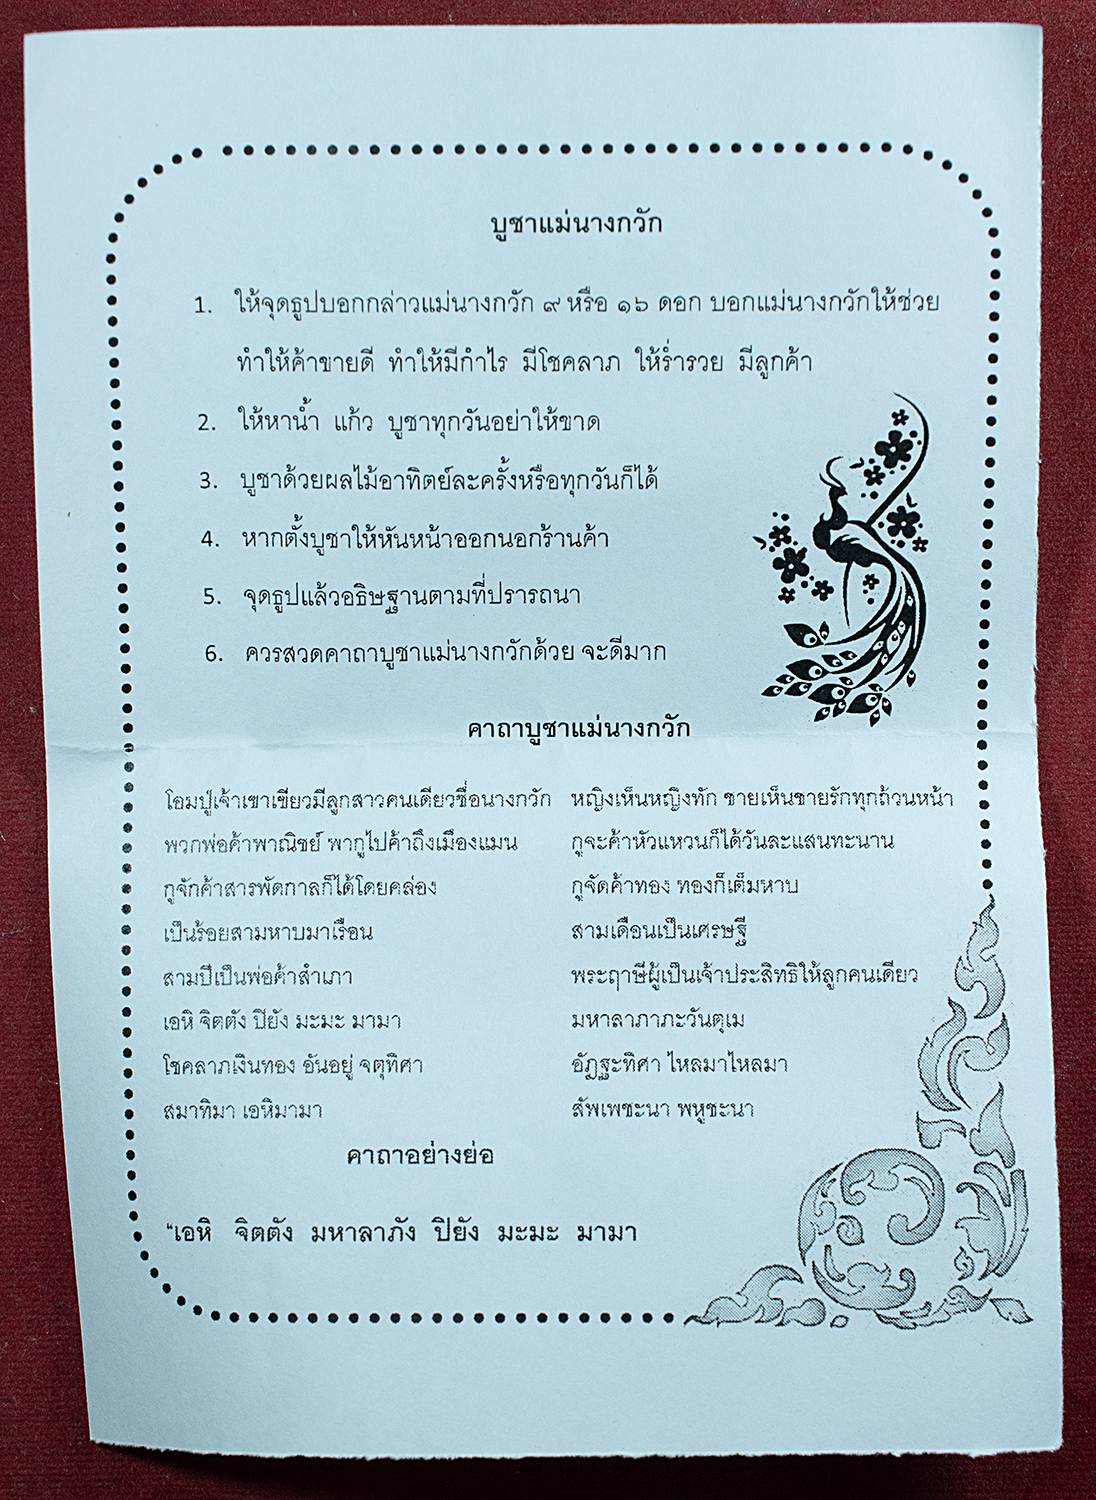 บูชาแม่นางกวัก
1. ให้จุดธูปบอกกล่าวแม่นางกวัก ๙ หรือ ๑๖ ดอก บอกแม่นางกวักให้ช่วย
ทำให้ค้าขายดี ทำให้มีกำไร มีโชคลาภ ให้ร่ำรวย มีลูกค้า
2. ให้หาน้ำ แก้ว บูชาทุกวันอย่าให้ขาด
3. บูชาด้วยผลไม้อาทิตย์ละครั้งหรือทุกวันก็ได้
4. หากตั้งบูชาให้หันหน้าออกนอกร้านค้า
5. จุดธูปแล้วอธิษฐานตามที่ปรารถนา
6. ควรสวดคาถาบูชาแม่นางกวักด้วย จะดีมาก
คาถาบูชาแม่นางกวัก
โอมปู่เจ้าเขาเขียวมีลูกสาวคนเดียวชื่อนางกวัก หญิงเห็นหญิงทัก ชายเห็นชายรักทุกถ้วนหน้า
พวกพ่อค้าพาณิชย์ พากูไปค้าถึงเมืองแมน กูจะค้าหัวแหวนก็ได้วันละแสนทะนาน
กูจักค้าสารพัดกาลก็ได้โดยคล่อง กูจัดค้าทอง ทองก็เต็มหาบ
เป็นร้อยสามหาบมาเรือน สามเดือนเป็นเศรษฐี
สามปีเป็นพ่อค้าสำเภา พระฤาษีผู้เป็นเจ้าประสิทธิให้ลูกคนเดียว
เอหิ จิตตัง ปิยัง มะมะ มามา มหาลาภาภะวันตุเม
โชคลาภเงินทอง อันอยู่ จตุทิศา อัฏฐะทิศา ไหลมาไหลมา
สมาทิมา เอหิมามา สัพเพชะนา พหูชะนา
คาถาอย่างย่อ
"เอหิ จิตตัง มหาลาภัง ปิยัง มะมะ มามา